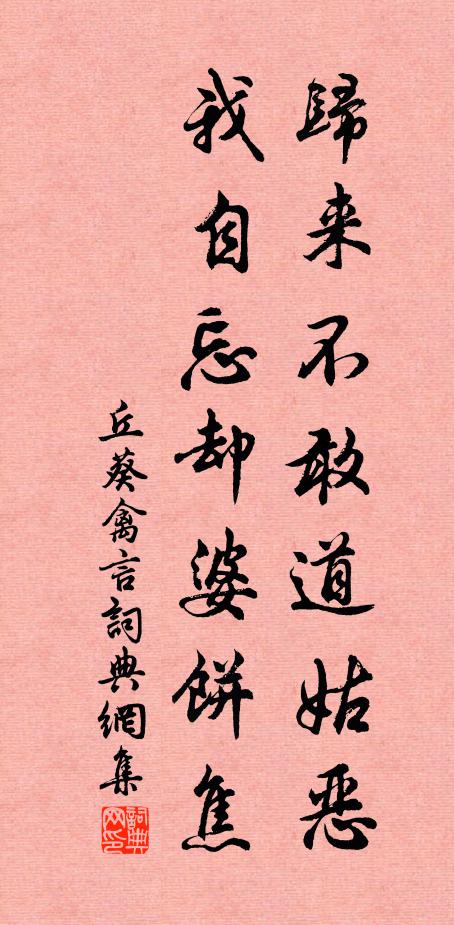 歸来不敢道姑恶
我自忘却婆餅焦
丘葵禽言詞典網集
詞典网印